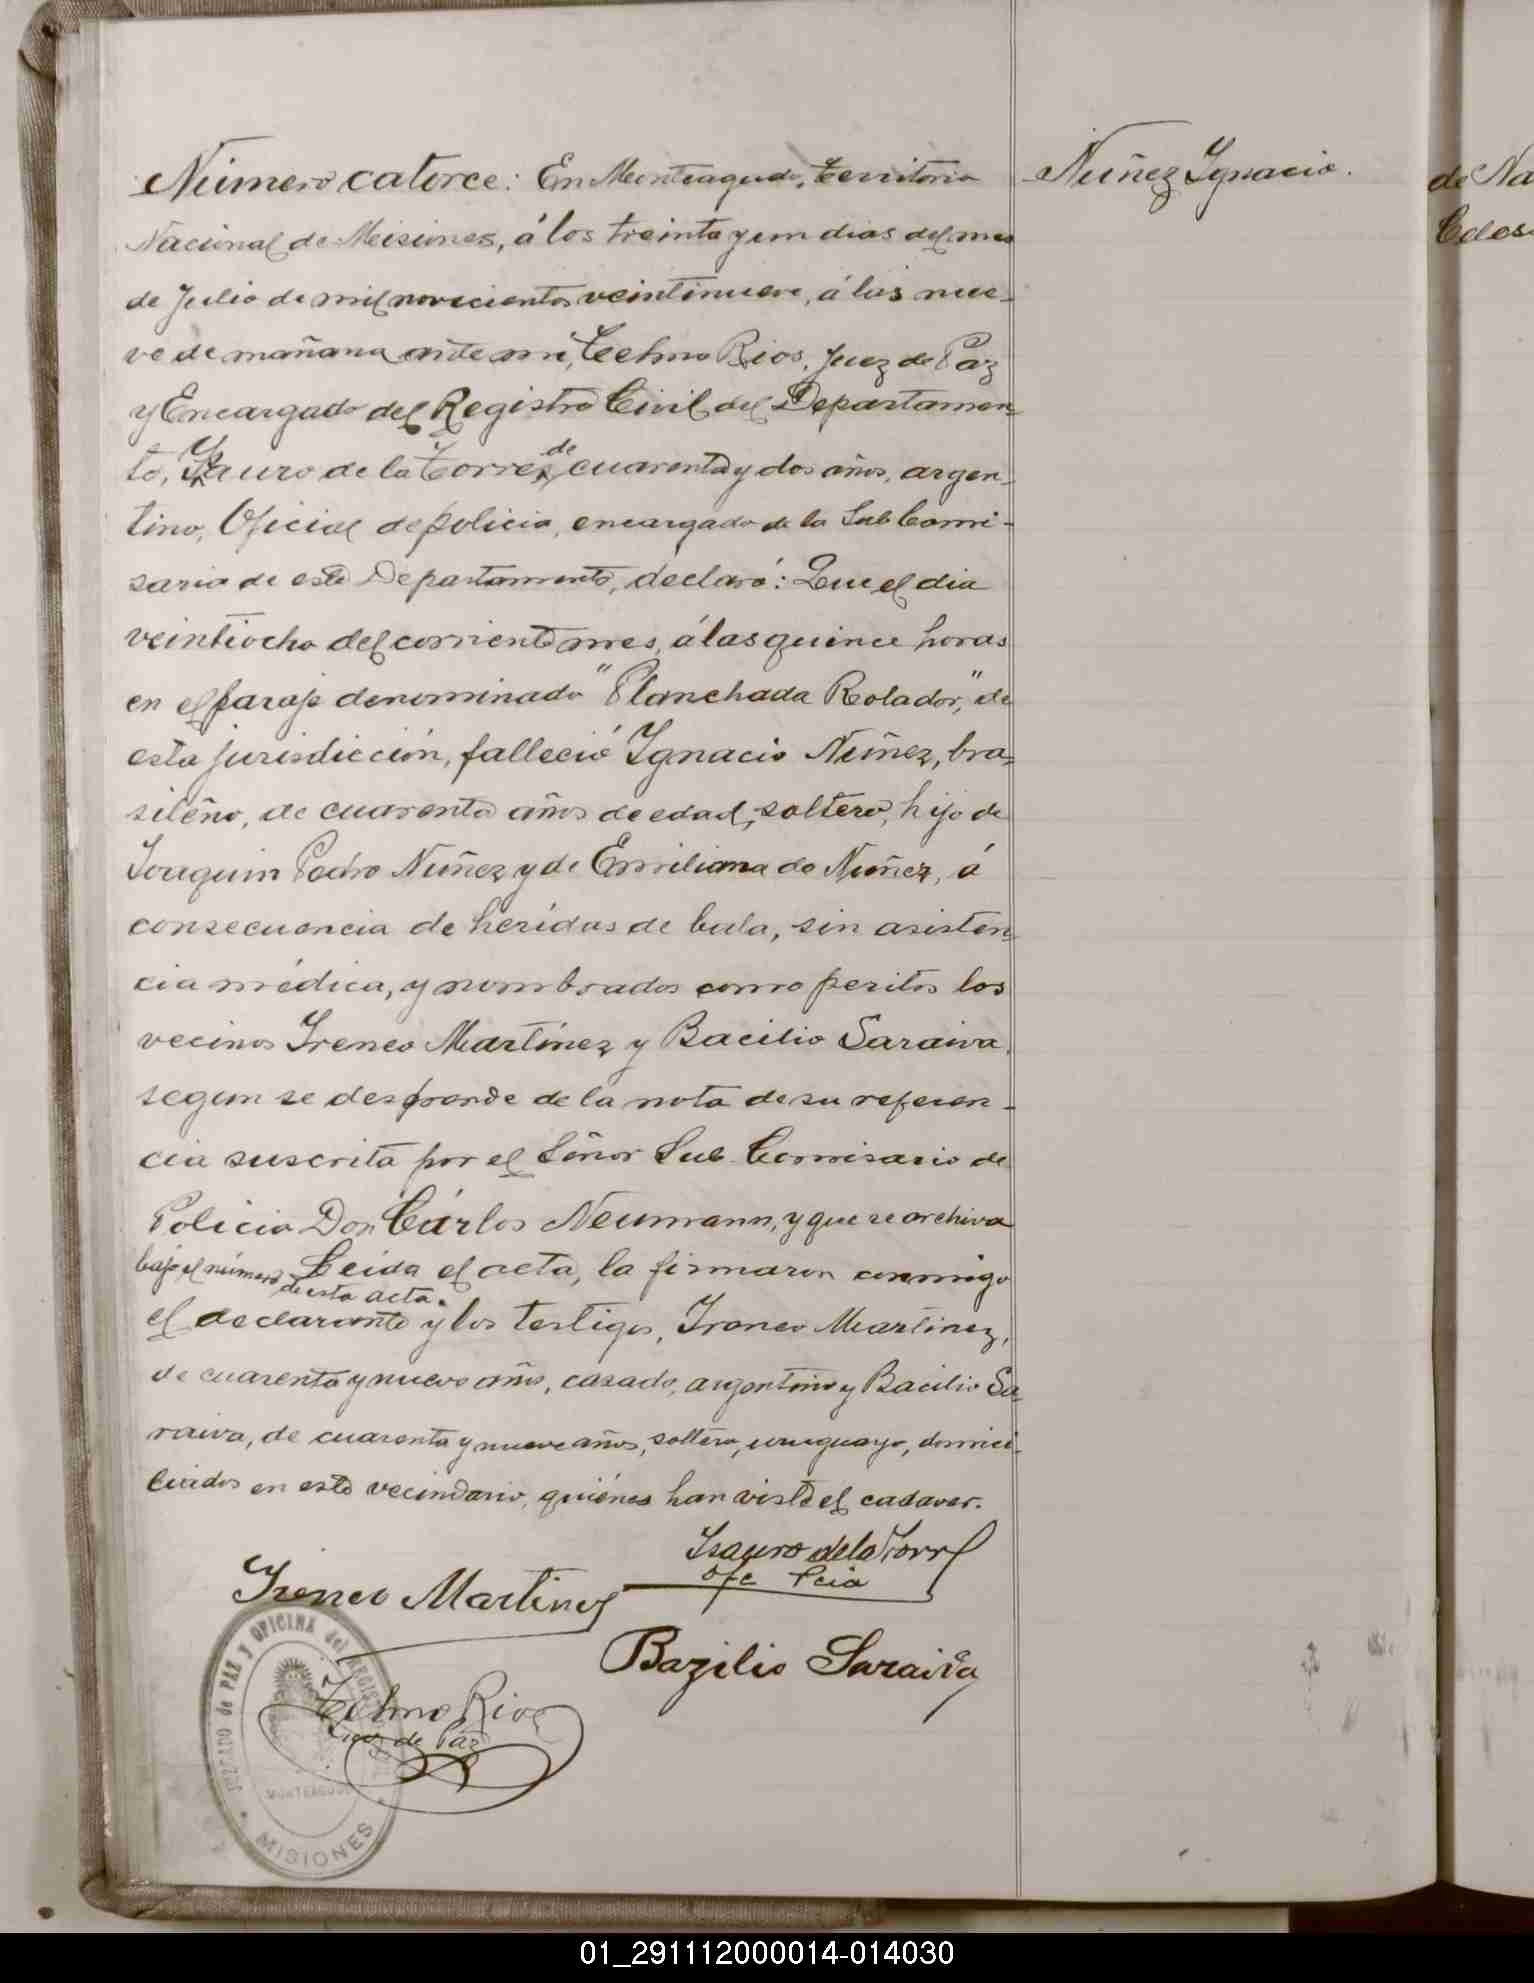 Número catorce: En Monteagudo, territorio
Nacional de Misiones, á los treinta y un dias del mes
de Julio de mil novecientos veintinueve, á las nue-
ve de mañana ante mí, Telmo Rios, Juez de Paz
y Encargado del Registro Civil del Departamen-
to, Isauro de la Torre, de cuarenta y dos años, argen-
tino, Oficial de policia, encargado de la Sub Comi-
saria de este Departamento, declaró: Que el dia
veintiocho del corriente mes, á las quince horas
en el paraje denominado "Planchada Rolador," de
esta jurisdicción, falleció Ignacio Núñez, bra-
sileño, de cuarenta años de edad, soltero, hijo de
Joaquin Pedro Nuñez y de Emiliana de Nuñez, á
consecuencia de heridas de bala, sin asisten-
cia médica, y nombrados como peritos los
vecinos Ireneo Martínez y Bacilio Saraiva,
segun se desprende de la nota de su referen-
cia suscrita por el Señor Sub Comisario de
Policia Don Cárlos Neumann, y que se archiva
bajo el número de esta acta. Leida el acta, la firmaron conmigo
el declarante y los testigos, Ireneo Martinez,
de cuarenta y nueve años, casado, argentino y Bacilio Sa-
raiva, de cuarenta y nueve años, soltero, uruguayo, domici-
liados en este vecindario, quiénes han visto el cadaver.
Isauro de la Torre
Ofc Pcia
Ireneo Martinez
Bazilio Saraiva
Telmo Rios
Juez de Paz
JUZGADO de PAZ Y OFICINA del REGISTRO
MONTEAGUDO
MISIONES
Núñez Ignacio.
de Na
01_291112000014-014030